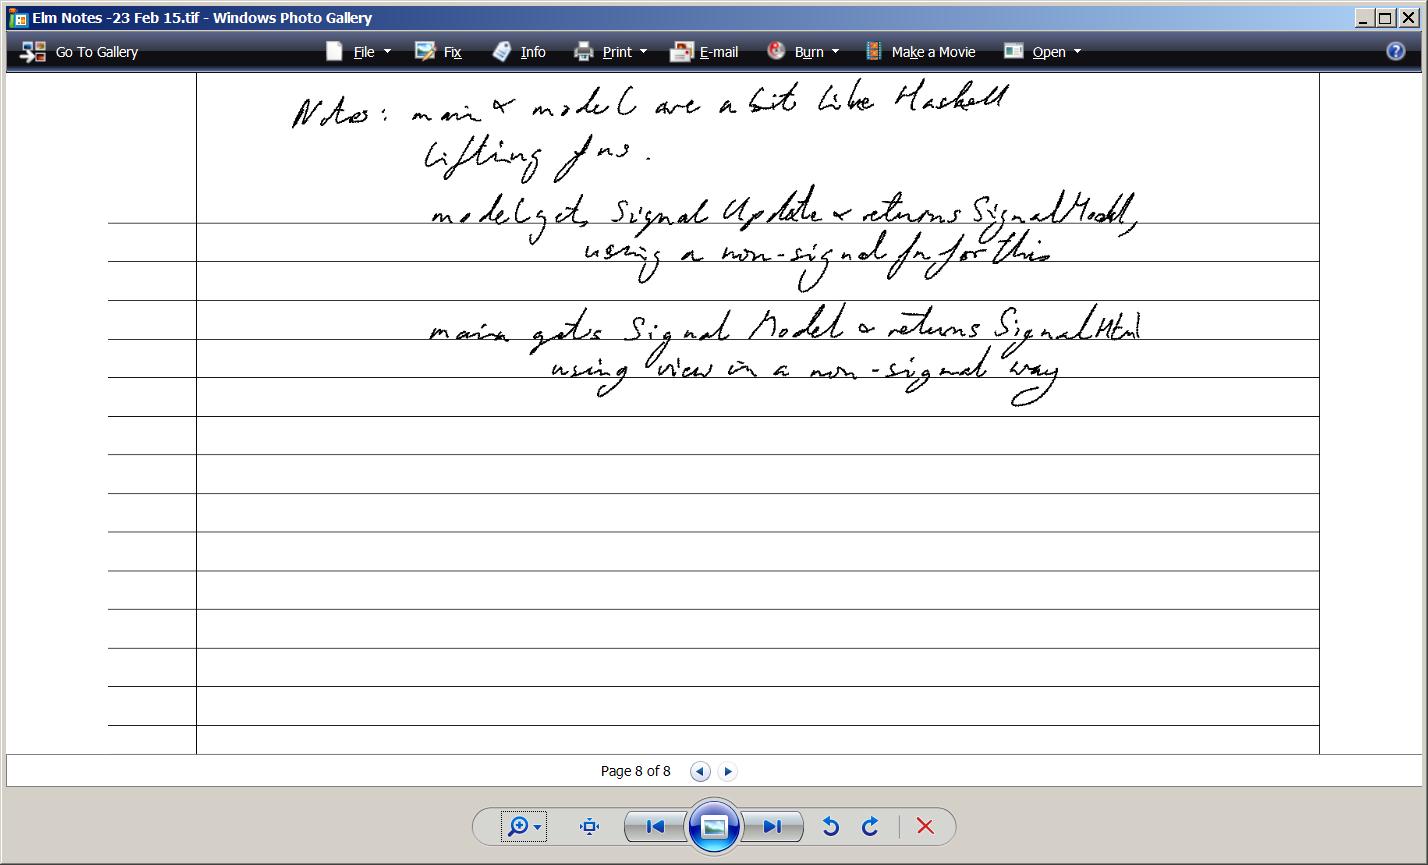 Elm Notes -23 Feb 15.tif - Windows Photo Gallery
Go To Gallery File Fix Info Print E-mail Burn Make a Movie Open
Notes: main & model are a bit like Haskell
lifting fns.
model gets Signal Update & returns Signal Model,
using a non-signal fn for this
main gets Signal Model & returns Signal Html
using view in a non-signal way
Page 8 of 8